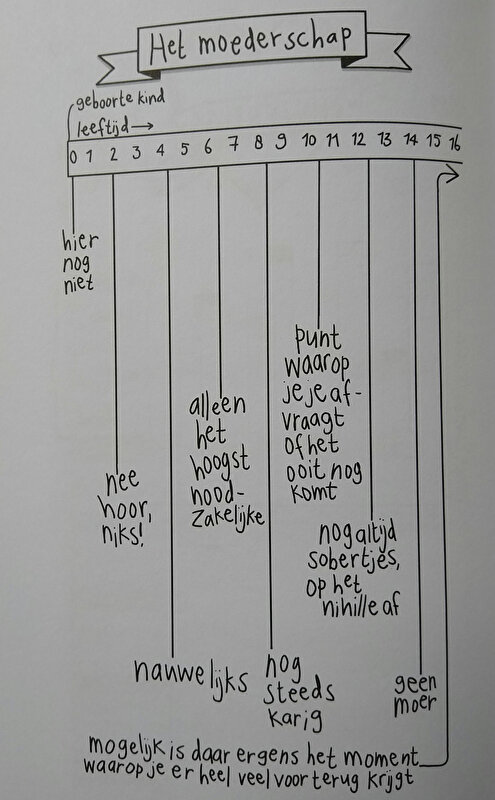 Het moederschap
geboorte kind
leeftijd →
0 1 2 3 4 5 6 7 8 9 10 11 12 13 14 15 16
hier
nog
niet
nee
hoor,
niks!
nauwelijks
alleen
het
hoogst
nood-
zakelijke
nog
steeds
karig
punt
waarop
je je af-
vraagt
of het
ooit nog
komt
nog altijd
sobertjes,
op het
nihille af
geen
moer
mogelijk is daar ergens het moment
waarop je er heel veel voor terug krijgt